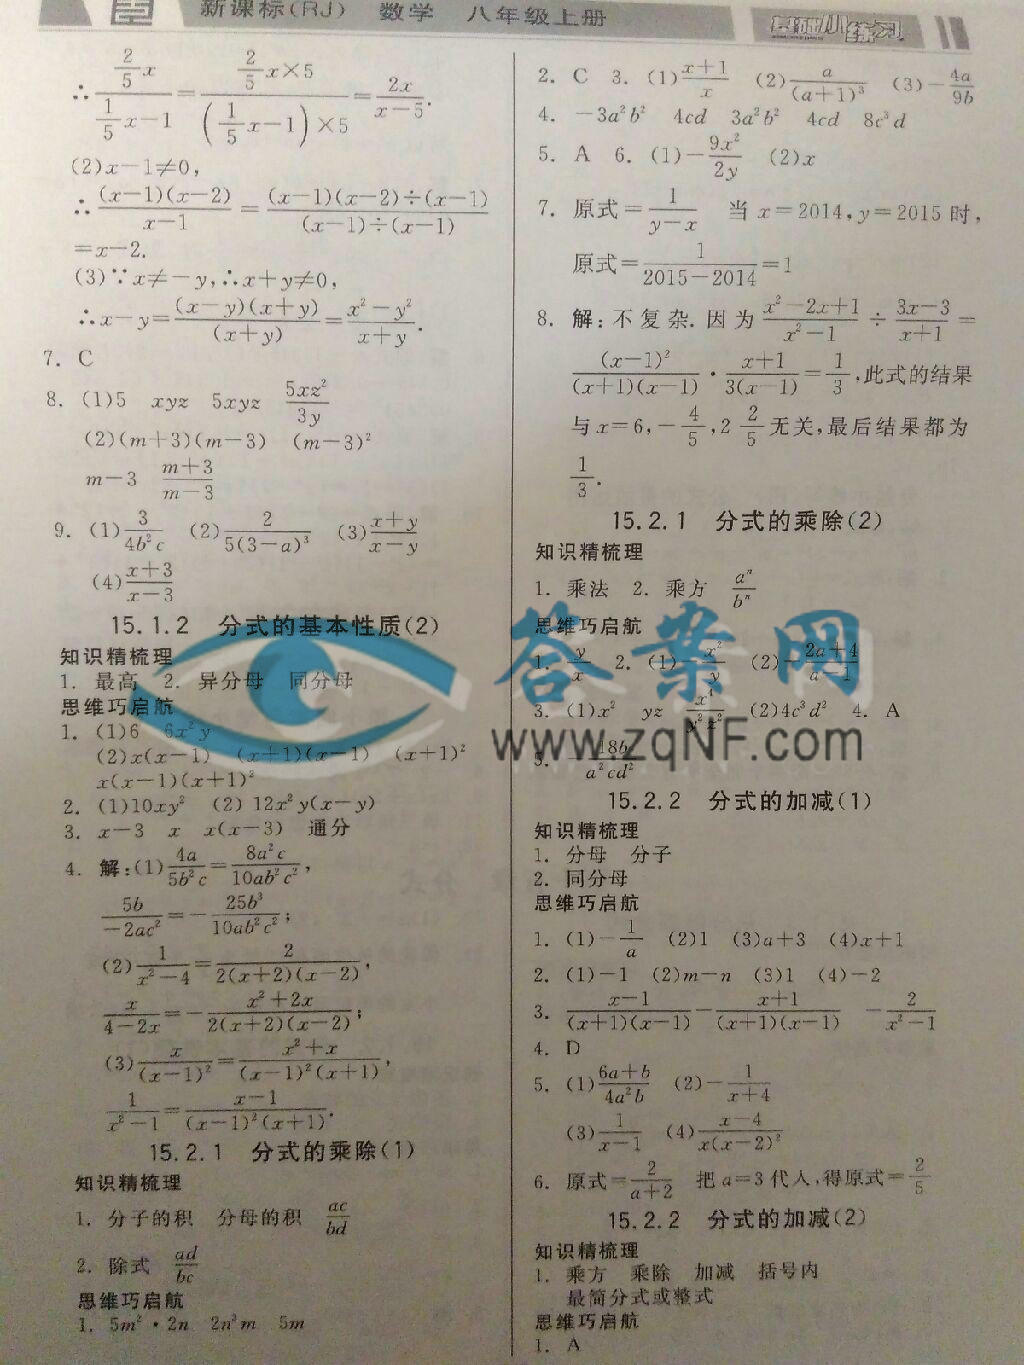 新课标(RJ) 数学 八年级上册
基础小练习
∴ (2/5 x)/(1/5 x－1)＝(2/5 x×5)/((1/5 x－1)×5)＝2x/(x－5).
(2)x－1≠0,
∴ (x－1)(x－2)/(x－1)＝((x－1)(x－2)÷(x－1))/((x－1)÷(x－1))
＝x－2.
(3)∵x≠－y,∴x＋y≠0,
∴x－y＝(x－y)(x＋y)/(x＋y)＝(x²－y²)/(x＋y).
7. C
8. (1)5 xyz 5xyz 5xz²/3y
(2)(m＋3)(m－3) (m－3)²
m－3 (m＋3)/(m－3)
9. (1)3/(4b²c) (2)2/(5(3－a)³) (3)(x＋y)/(x－y)
(4)(x＋3)/(x－3)
15.1.2 分式的基本性质(2)
知识精梳理
1. 最高 2. 异分母 同分母
思维巧启航
1. (1)6 6x²y
(2)x(x－1) (x＋1)(x－1) (x＋1)²
x(x－1)(x＋1)²
2. (1)10xy² (2) 12x²y(x－y)
3. x－3 x x(x－3) 通分
4. 解:(1)4a/(5b²c)＝8a²c/(10ab²c²),
5b/(－2ac²)＝－25b³/(10ab²c²);
(2)1/(x²－4)＝2/(2(x＋2)(x－2)),
x/(4－2x)＝－(x²＋2x)/(2(x＋2)(x－2));
(3)x/(x－1)²＝(x²＋x)/((x－1)²(x＋1)),
1/(x²－1)＝(x－1)/((x－1)²(x＋1)).
15.2.1 分式的乘除(1)
知识精梳理
1. 分子的积 分母的积 ac/bd
2. 除式 ad/bc
思维巧启航
1. 5m²·2n 2n³m 5m
2. C 3. (1)(x＋1)/x (2)a/(a＋1)³ (3)－4a/9b
4. －3a²b² 4cd 3a²b² 4cd 8c³d
5. A 6. (1)－9x²/2y (2)x
7. 原式＝1/(y－x) 当 x＝2014,y＝2015时,
原式＝1/(2015－2014)＝1
8. 解:不复杂.因为(x²－2x＋1)/(x²－1)÷(3x－3)/(x＋1)＝
(x－1)²/((x＋1)(x－1))·(x＋1)/(3(x－1))＝1/3,此式的结果
与x＝6,－4/5,2 2/5无关,最后结果都为
1/3.
15.2.1 分式的乘除(2)
知识精梳理
1. 乘法 2. 乘方 aⁿ/bⁿ
思维巧启航
1. y/x 2. (1) x²/y (2)－(2a＋4)/(a－1)
3. (1)x² yz (2)4c³d² 4. A
5.
15.2.2 分式的加减(1)
知识精梳理
1. 分母 分子
2. 同分母
思维巧启航
1. (1)－1/a (2)1 (3)a＋3 (4)x＋1
2. (1)－1 (2)m－n (3)1 (4)－2
3. (x－1)/((x＋1)(x－1))－(x＋1)/((x＋1)(x－1)) －2/(x²－1)
4. D
5. (1)(6a＋b)/(4a²b) (2)－1/(x＋4)
(3)1/(x－1) (4)(x－4)/(x(x－2)²)
6. 原式＝2/(a＋2) 把a＝3代入,得原式＝2/5
15.2.2 分式的加减(2)
知识精梳理
1. 乘方 乘除 加减 括号内
最简分式或整式
思维巧启航
1. A
答案网
www.zqNF.com